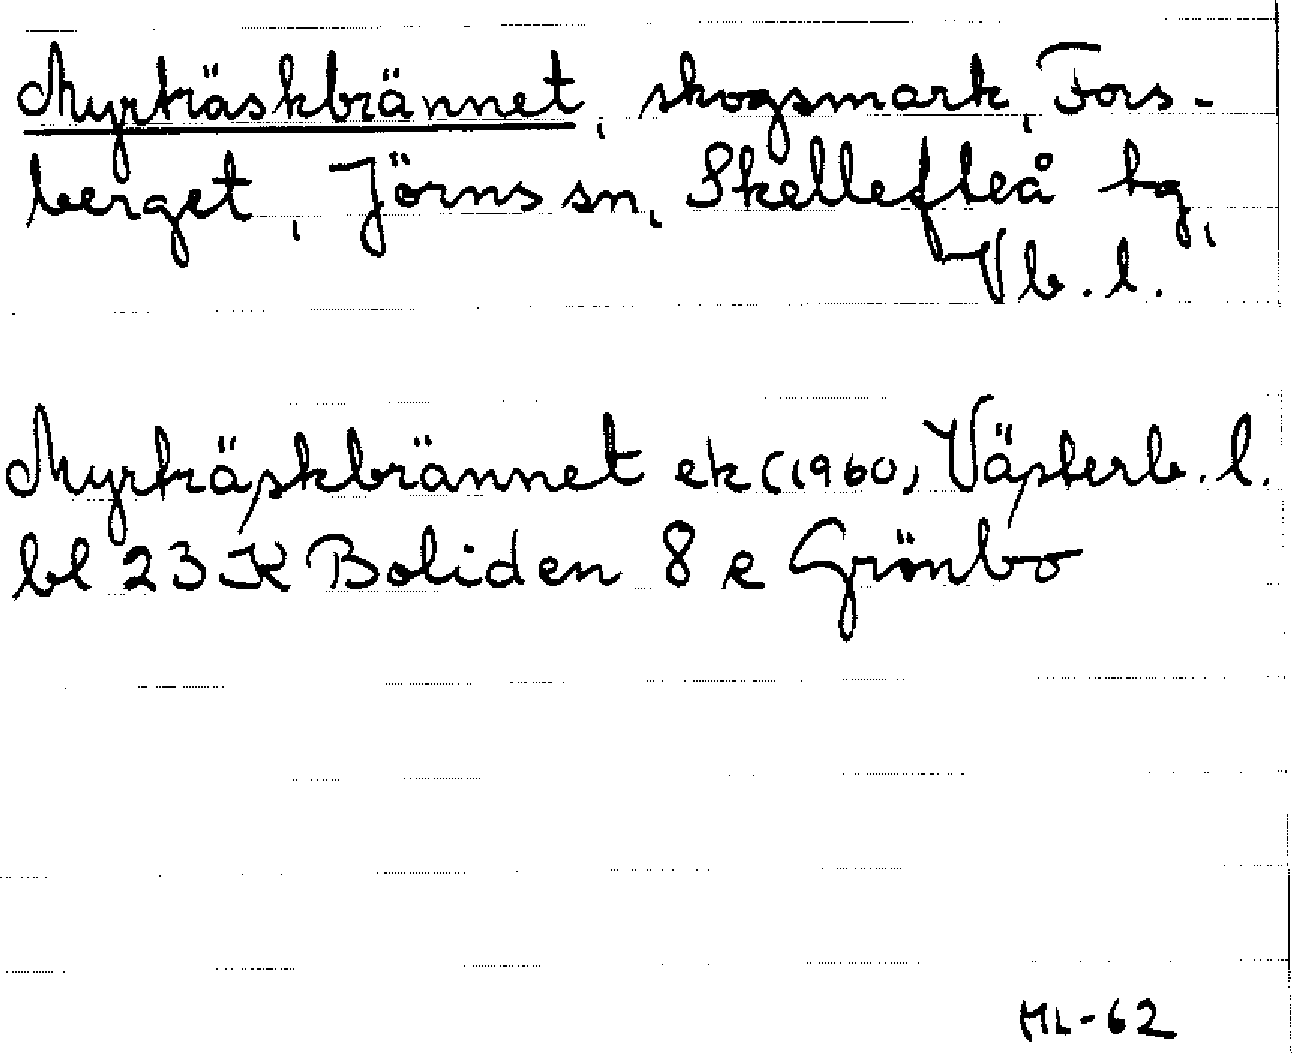 Myrträskbrännet, skogsmark, Fors-
berget, Jörns sn, Skellefteå tg,
Vb. l.
Myrträskbrännet ek (1960) Västerb. l.
bl 23 K Boliden 8 e Grönbo
ML-62